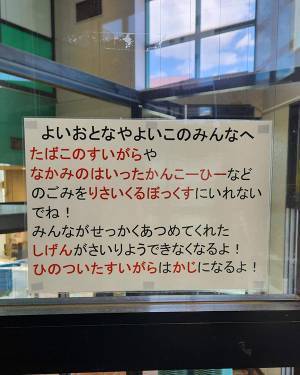 よいおとなやよいこのみんなへ
たばこのすいがらや
なかみのはいったかんこーひーなど
のごみをりさいくるぼっくすにいれない
でね！
みんながせっかくあつめてくれた
しげんがさいりようできなくなるよ！
ひのついたすいがらはかじになるよ！